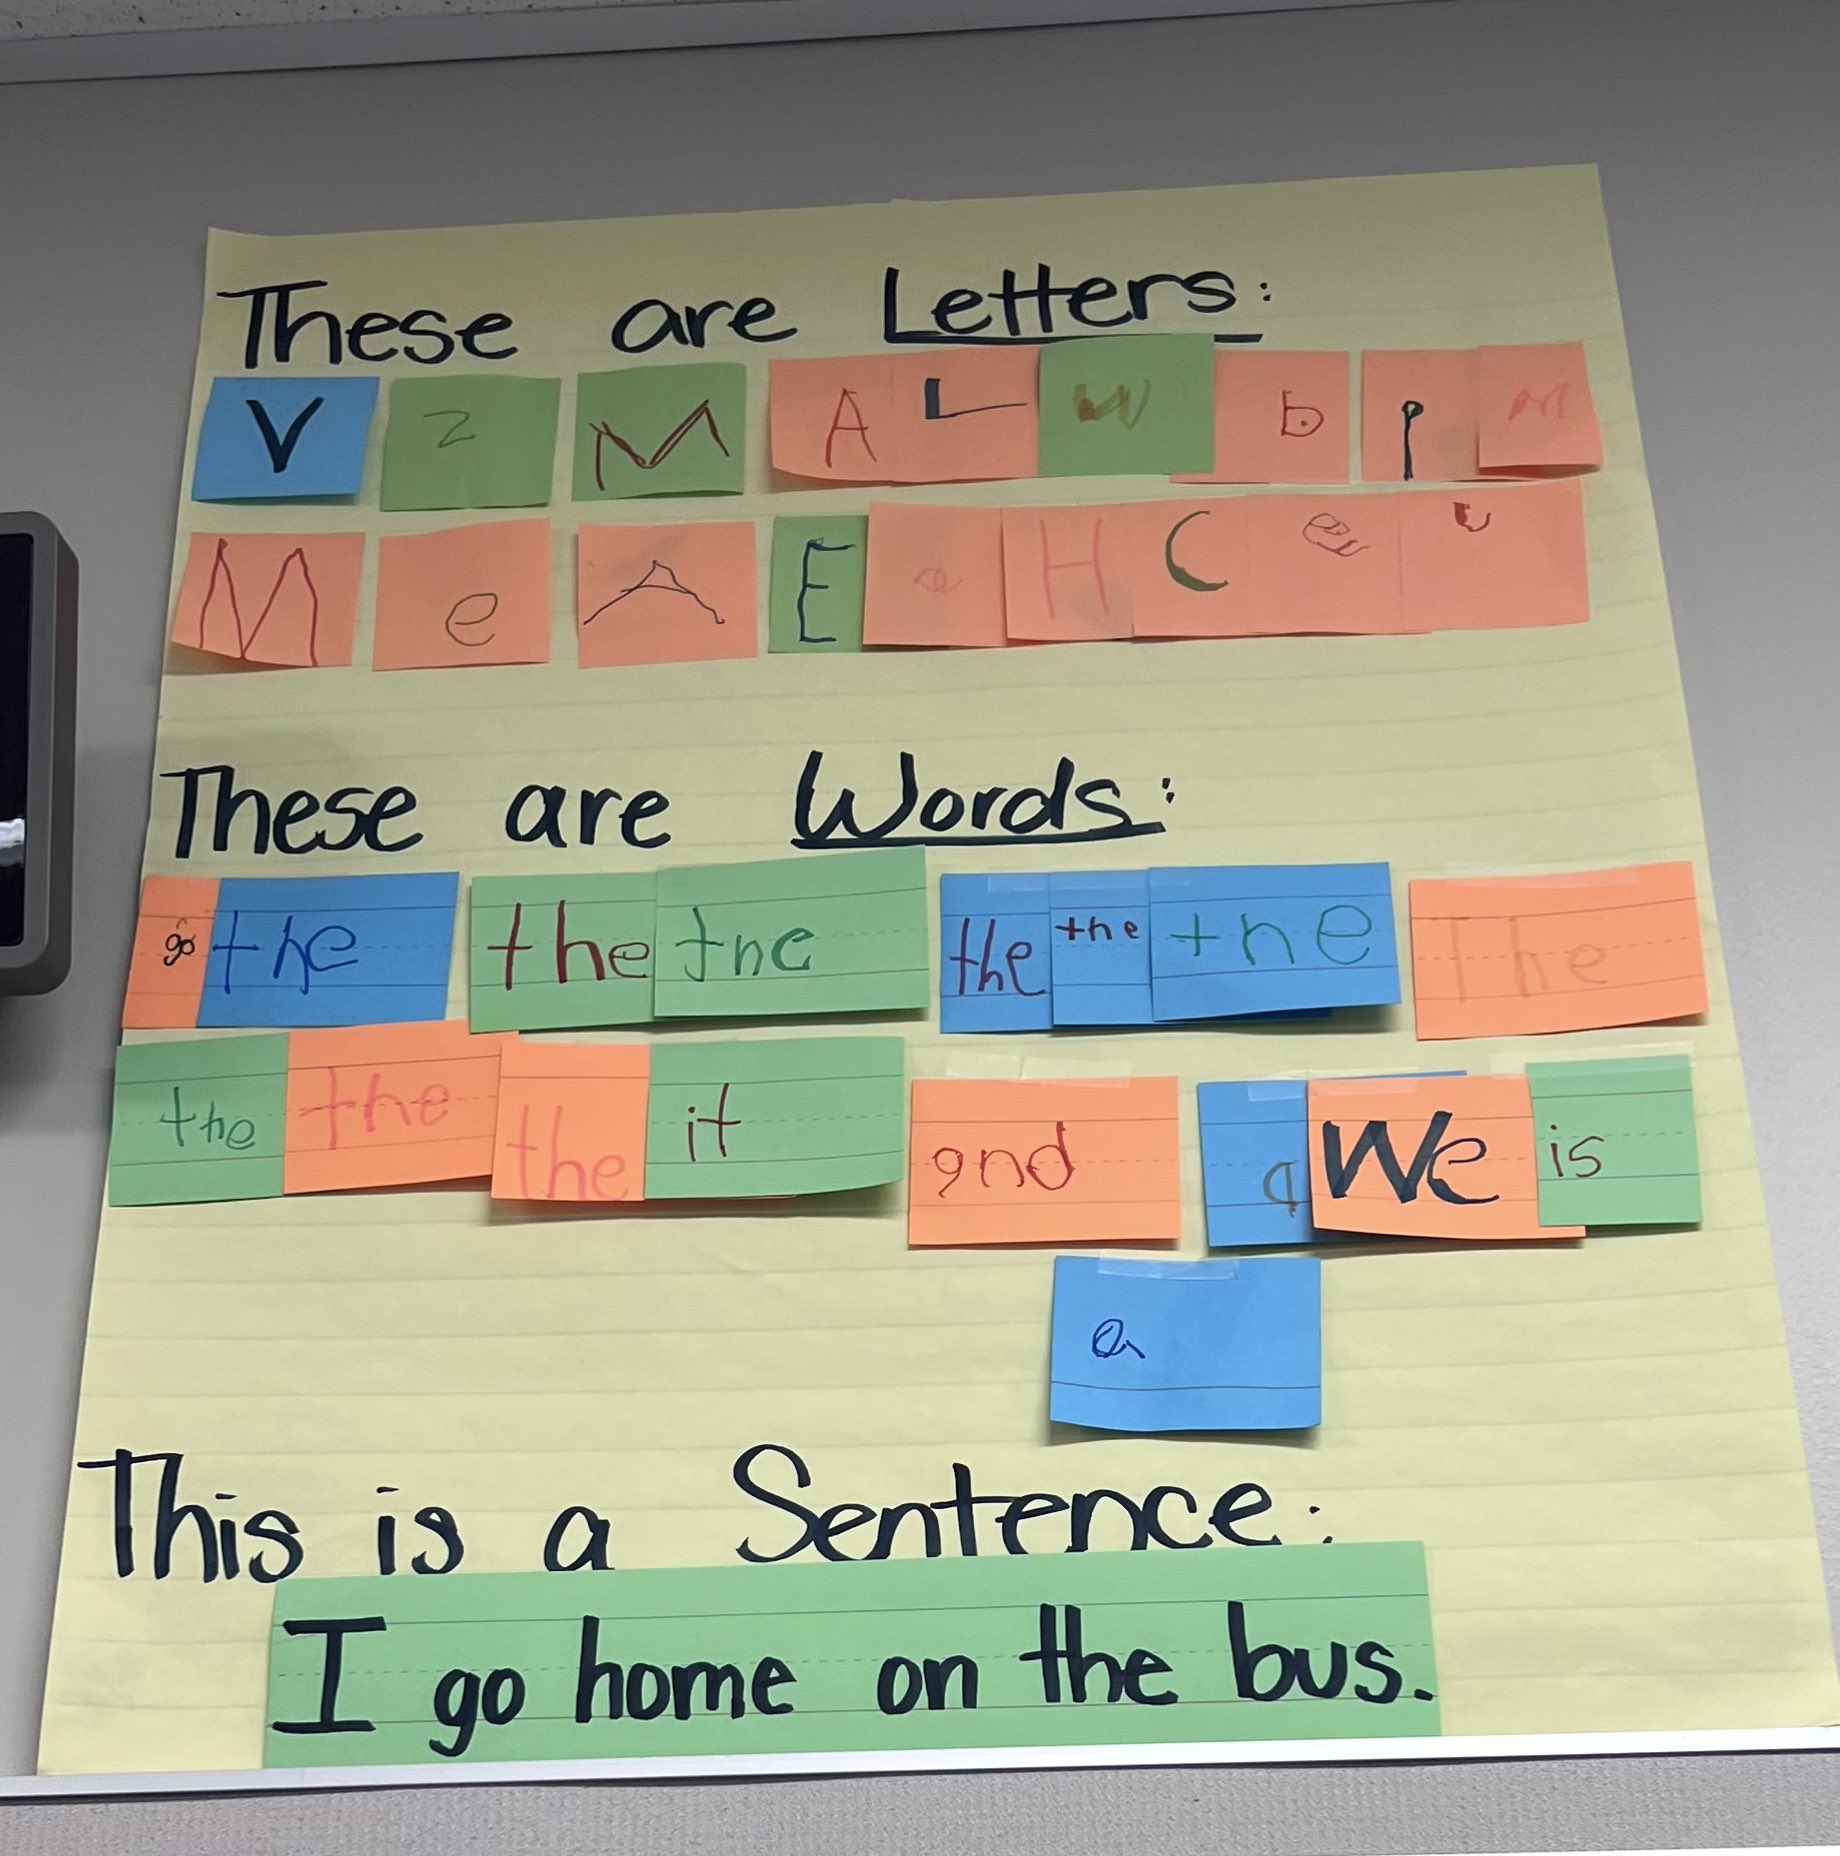 These are Letters:
V z M A L w b p m
M e A E e H C e u
These are Words:
go the the the the the the The
the the the it and a We is
a
This is a Sentence:
I go home on the bus.